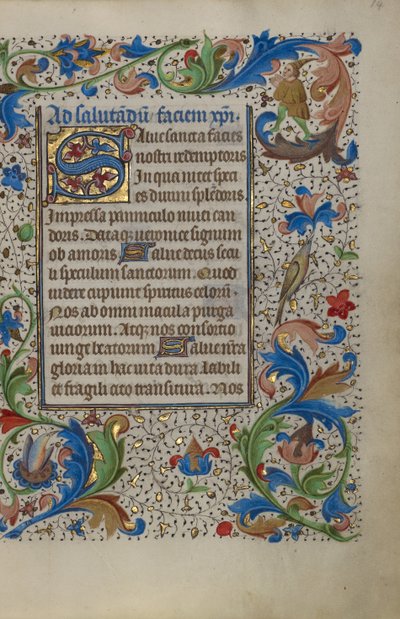 14
Ad salutādū faciem xp̄i
Salue sancta facies
nostri redemptoris
In qua nitet speci
es diuini splēdoris
Impressa panniculo niuei can
doris. Dataq; veronice signum
ob amoris. Salue decus secu
li speculum sanctorum. Quod
videre cupiunt spiritus celorū.
Nos ab omni macula purga
viciorum. Atq; nos consortio
iunge beatorum. Salue nr̄a
gloria in hac vita dura. Labili
et fragili cito transitura. Nos